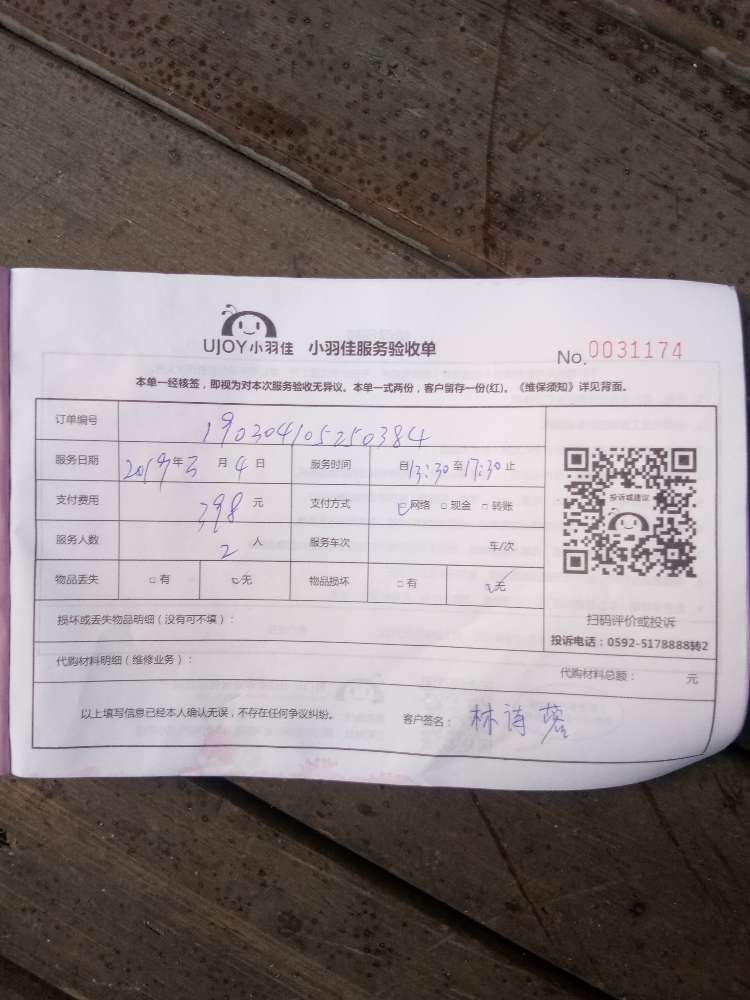 UJOY小羽佳 小羽佳服务验收单
No.0031174
本单一经核签，即视为对本次服务验收无异议。本单一式两份，客户留存一份(红)。《维保须知》详见背面。
订单编号 19030410525038​4
服务日期 2019年3月4日 服务时间 自13:30至17:30止
支付费用 398元 支付方式 网络 现金 转账
服务人数 2人 服务车次 车/次
物品丢失 有 无 物品损坏 有 无
投诉或建议
扫码评价或投诉
投诉电话：0592-5178888转2
损坏或丢失物品明细（没有可不填）：
代购材料明细（维修业务）：
代购材料总额： 元
以上填写信息已经本人确认无误，不存在任何争议纠纷。 客户签名：林诗蓉